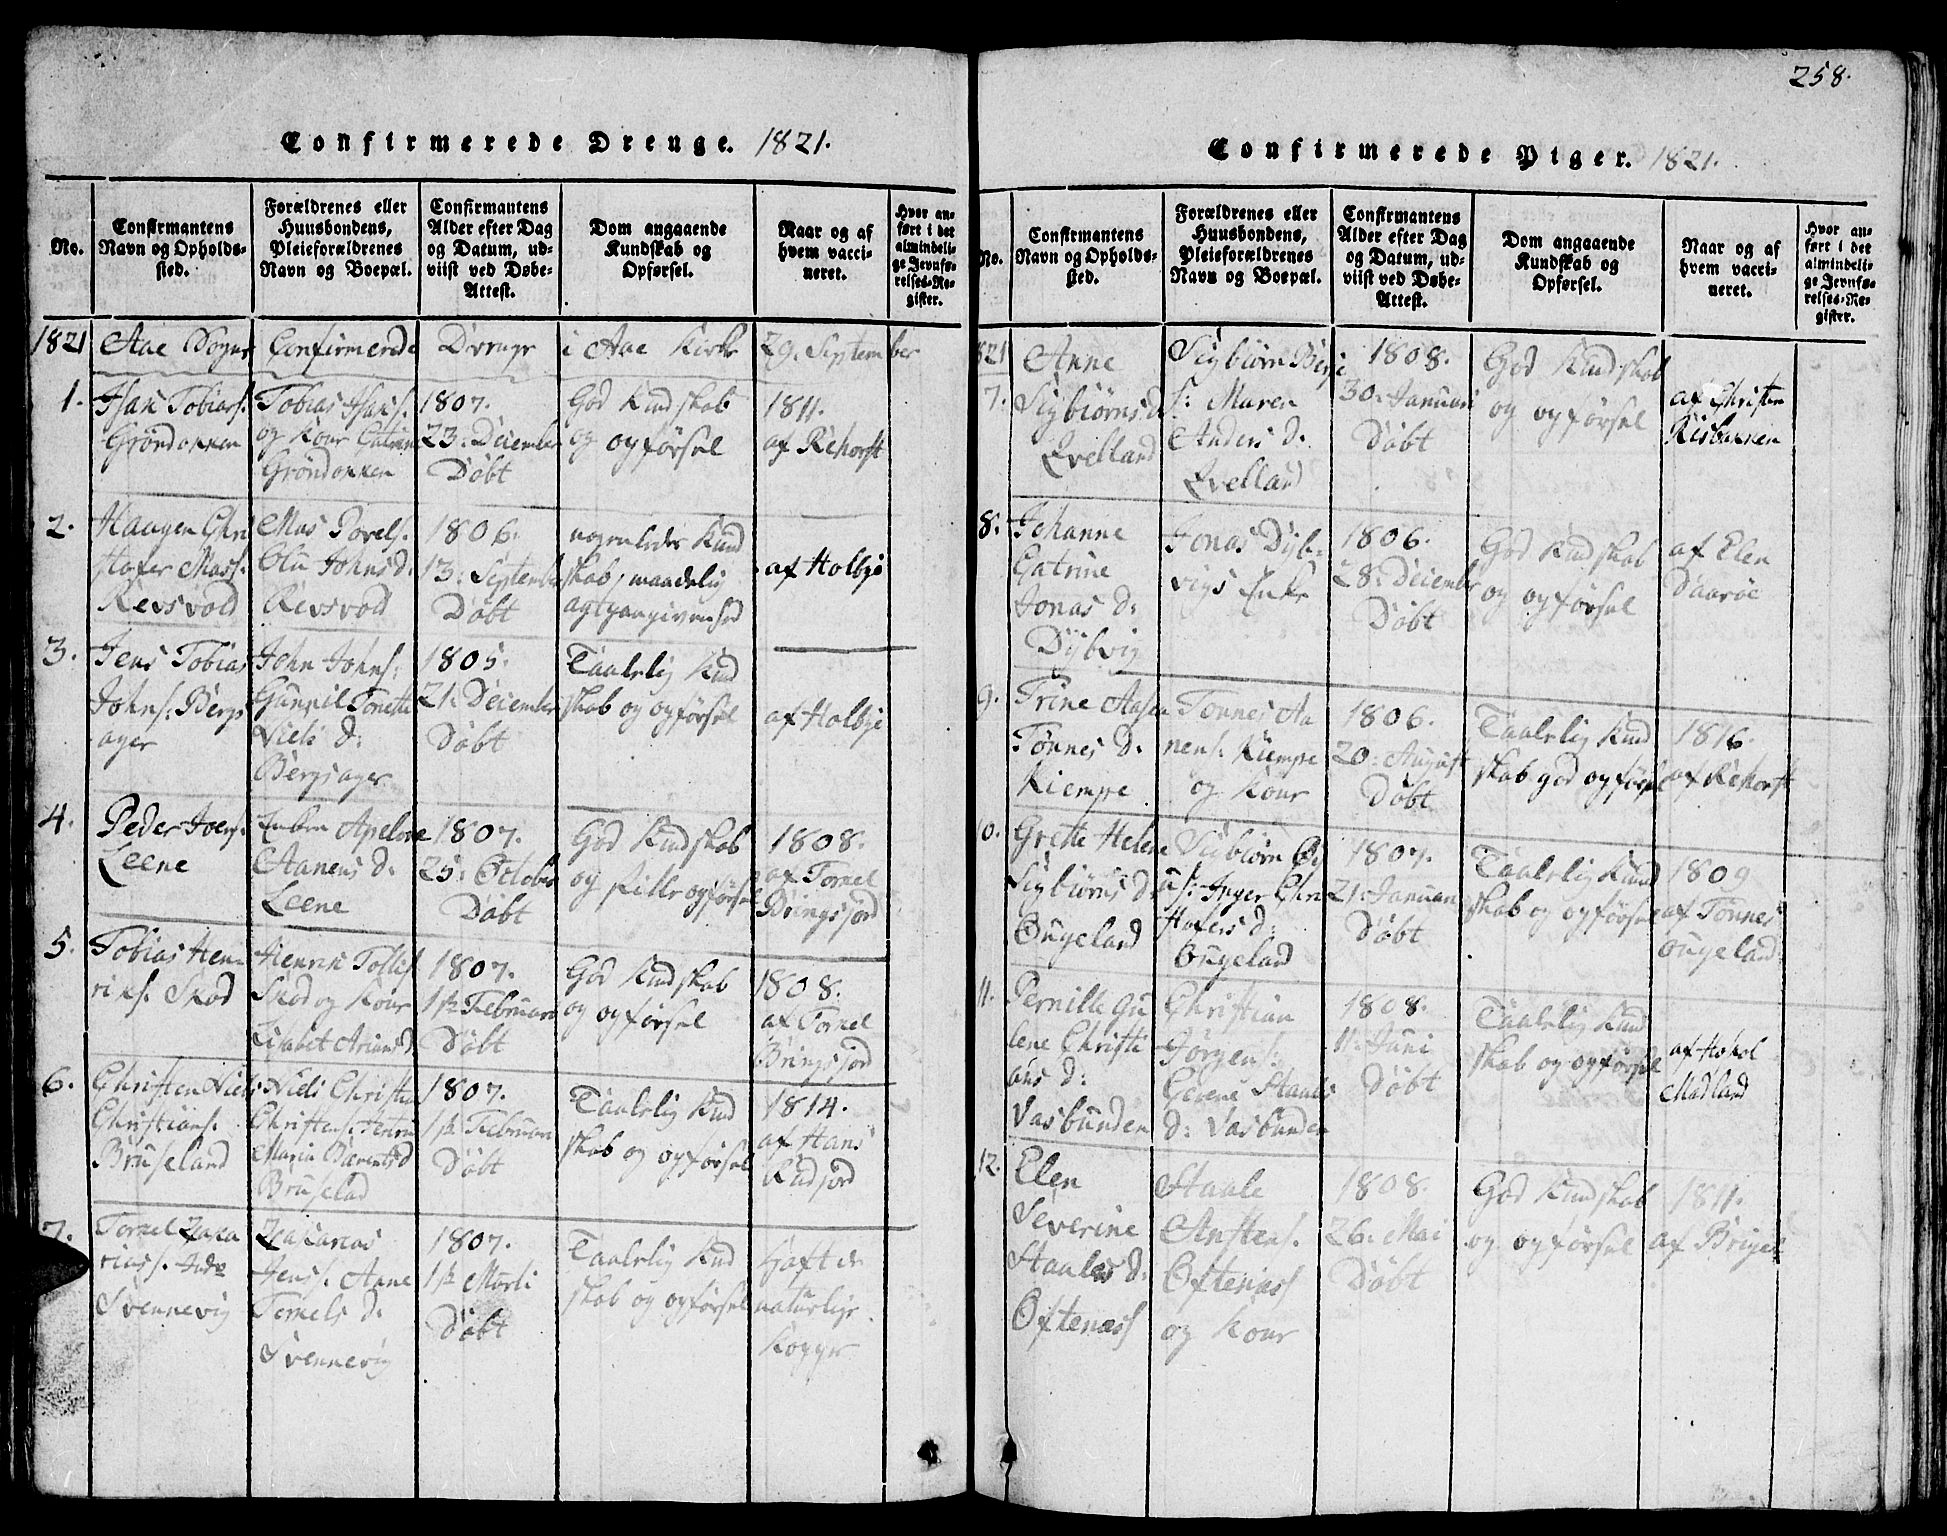 Confirmerede Drenge. 1821.
No.
Confirmantens
Navn og Opholds-
sted.
Forældrenes eller
Huusbondens,
Pleieforældrenes
Navn og Boepæl.
Confirmantens
Alder efter Dag
og Datum, ud-
viist ved Døbe-
Attest.
Dom angaaende
Kundskab og
Opførsel.
Naar og af
hvem vacci-
neret.
Hvor an-
ført i det
almindeli-
ge Jevnfø-
relses-Re-
gister.
1821 Aae Sogns Confirmerede Drenge i Aae Kirke 29. September
1.
Isak Tobias.
Gröndokken
Tobias Isaks.
og Kone Catrine
Gröndokken
1807.
23: December
Döbt
God Kundskab
og opförsel
1811.
af Rehorst
2.
Haagen Chri
stofer Mass.
Revsvold
Mas Povels.
Olu Johns d:
Revsvold
1806.
13: September
Döbt
nogenledes Kund
skab, maadelig
agtpaagivenhed
af Holbye
3.
Jens Tobias
Johns. Bergs
ager
John Johns:
Gunnil Tonette
Niels d:
Bergsager
1805.
21: December
Döbt
Taalelig Kund
skab og opförsel
af Holbye
4.
Peder Joers.
Leene
Enken Apelone
Aanens d:
Leene
1807.
25: Octobr
Döbt
God Kundskab
og stille opförsel
1808.
af Tornel
Bringsjord
5.
Tobias Hen
riks. Skod
Henrik Tollis
Skod og Kone
Lisabet Ariansd
1807.
1ste Februari
Döbt
God Kundskab
og opförsel
1808.
af Tornel
Bringsjord
6.
Christen Niels
Christians.
Bruseland
Niels Christia
Christens. Henric
Marie Barentsd
Bruselad
1807.
1ste Februari
Döbt
Taalelig Kund
skab og opförsel
1814.
af Hans
Rudjord
7.
Tornel Zaka
rias. Indr
Svennevig
Zakarias
Jens. Anne
Temels d:
Svennevig
1807.
1ste Marti
Döbt
Taalelig Kund
skab og opförsel
Haft de
naturlige
Kopper
258.
Confirmerede Piger. 1821.
No.
Confirmantens
Navn og Opholds-
sted.
Forældrenes eller
Huusbondens,
Pleieforældrenes
Navn og Boepæl.
Confirmantens
Alder efter Dag
og Datum, ud-
viist ved Døbe-
Attest.
Dom angaaende
Kundskab og
Opførsel.
Naar og af
hvem vacci-
neret.
Hvor an-
ført i det
almindeli-
ge Jevnfø-
relses-Re-
gister.
821
7.
Anne
Sigbiörns d
Qvelland
Sigbiörn Berge
s: Maren
Anders d:
Qvelland
1808.
30: Januari
Döbt
God Kundskab
og opförsel
af Christen
Risbakken
8.
Johanne
Catrine
Jonas d:
Dybvig
Jonas Dyb-
vigs Enke
1806.
28: Decembr
Döbt
God Kundskab
og opförsel
af Elen
Daaröe
9.
Trine Aasen
Tönnes d:
Kiempe
Tönnes Aa
nens: Kiempe
og Kone
1806.
20: August
Döbt
Taalelig Kund
skab god opförsel
1816.
af Rehorst
10.
Grette Helene
Sigbiörns d:
Öugeland
Sibiörn
s: Inger Chri
stofers d:
Öugeland
1807.
21: Januari
Döbt
Taalelig Kund
skab og opförsel
1809
af Tönnes
Öugeland:
11.
Pernille Gu
lene Christi
ans d:
Vasbunden
Christian
Jörgens:
Gevene Staales
d: Vasbunden
1808.
11: Juni
Döbt
Taalelig Kund
skab og opförsel
af Hokol
Madland
12.
Elen
Severine
Staales d:
Öftenæs
Staale
Anstens.
Öftenæs
og Kone
1808.
26: Mai
Döbt
God Kundskab
og opförsel
1811.
af Briger